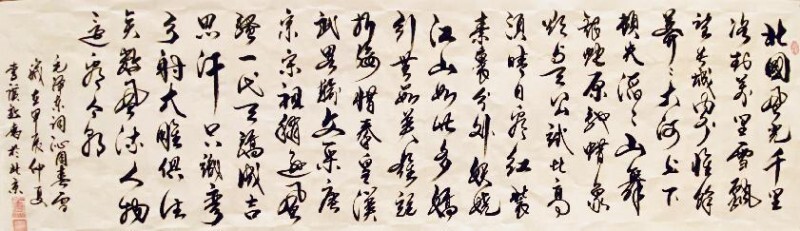 北國風光千里
冰封萬里雪飄
望長城內外惟餘
莽〻大河上下
頓失滔〻山舞
銀蛇原馳蠟象
欲與天公試比高
須晴日看紅裝
素裹分外妖嬈
江山如此多嬌
引無數英雄競
折腰惜秦皇漢
武畧輸文采唐
宗宋祖稍遜風
騷一代天驕成吉
思汗只識彎
弓射大雕俱往
矣數風流人物
還看今朝
毛澤東詞沁園春雪
歲在甲辰仲夏
李 書於北京